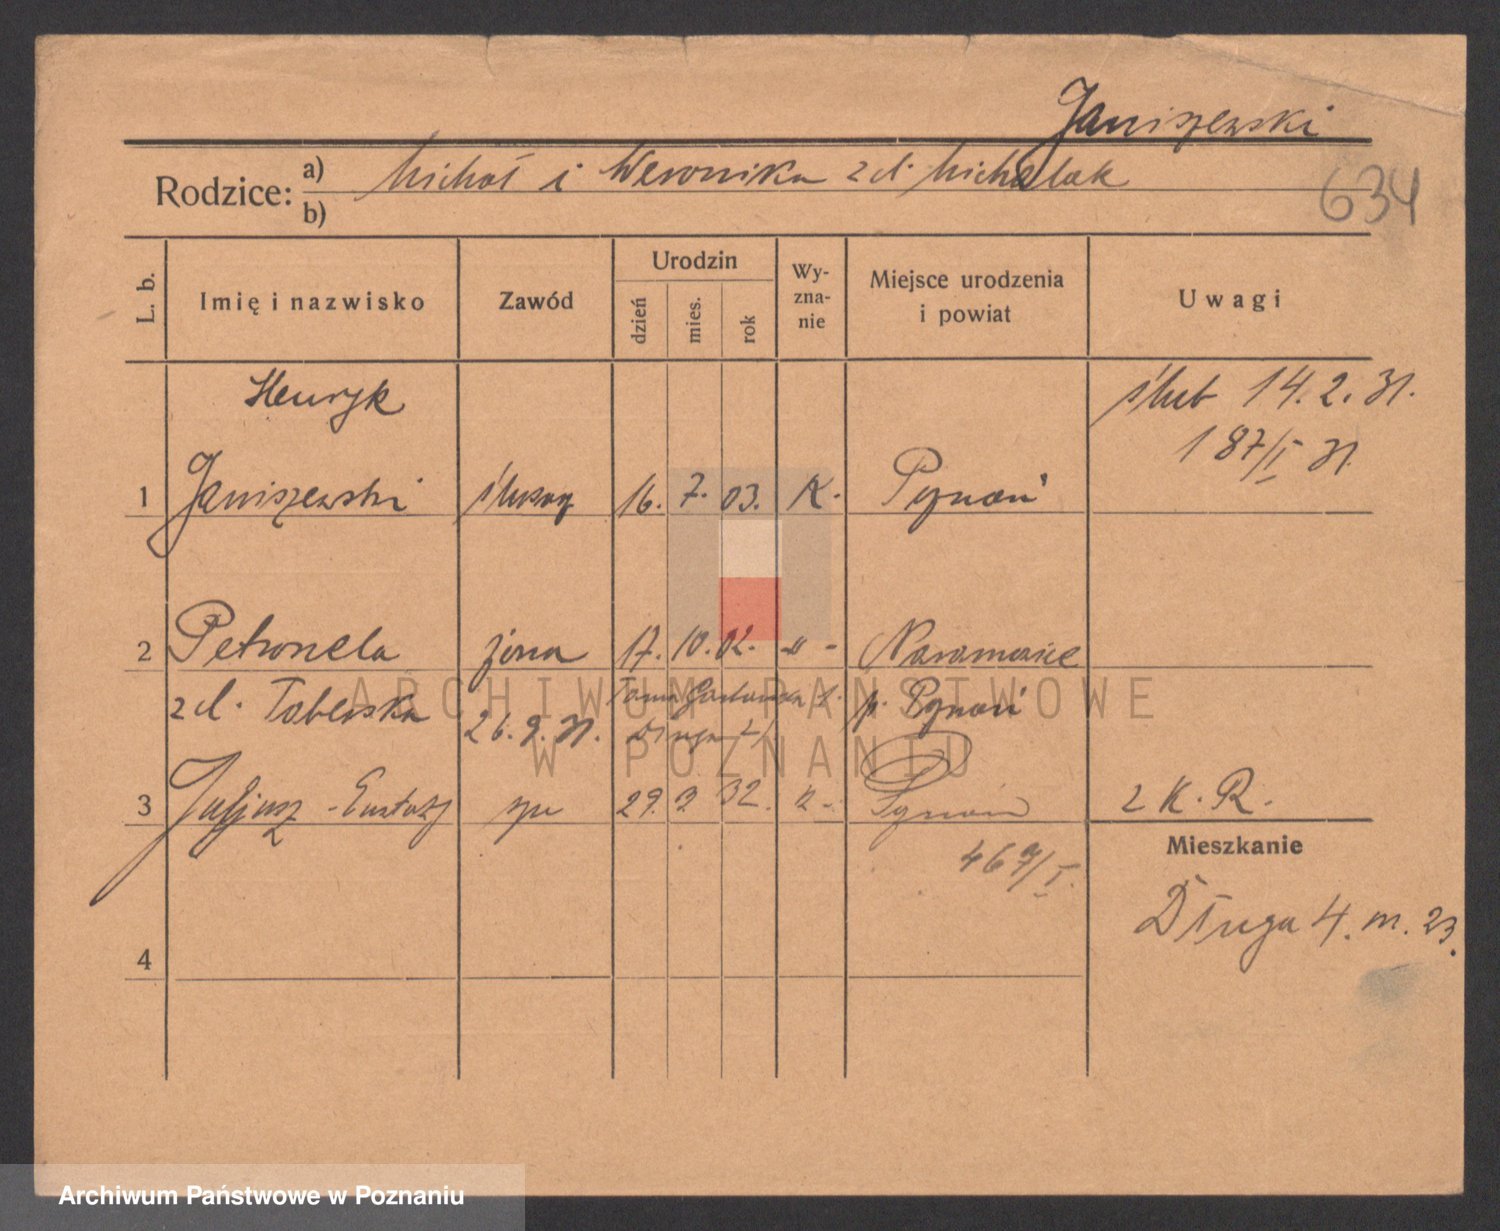 Janiszewski
Rodzice: a) Michał i Weronika z d. Michalak
b)
634
L. b.
Imię i nazwisko
Zawód
Urodzin
dzień
mies.
rok
Wy-
zna-
nie
Miejsce urodzenia
i powiat
Uwagi
Henryk
ślub 14. 2. 31.
187/I 31
1 Janiszewski ślusarz 16. 7. 03. K. Poznań
2 Petronela żona 17. 10. 02. " - Naramowice
z d. Taberska 26. 9. 31. p. Poznań
Długa
3 Juljusz - Eustazy syn 29. 3 32. K - Poznań 2 K. R.
467/I.
Mieszkanie
Długa 4. m. 23.
4
ARCHIWUM PAŃSTWOWE
W POZNANIU
Archiwum Państwowe w Poznaniu